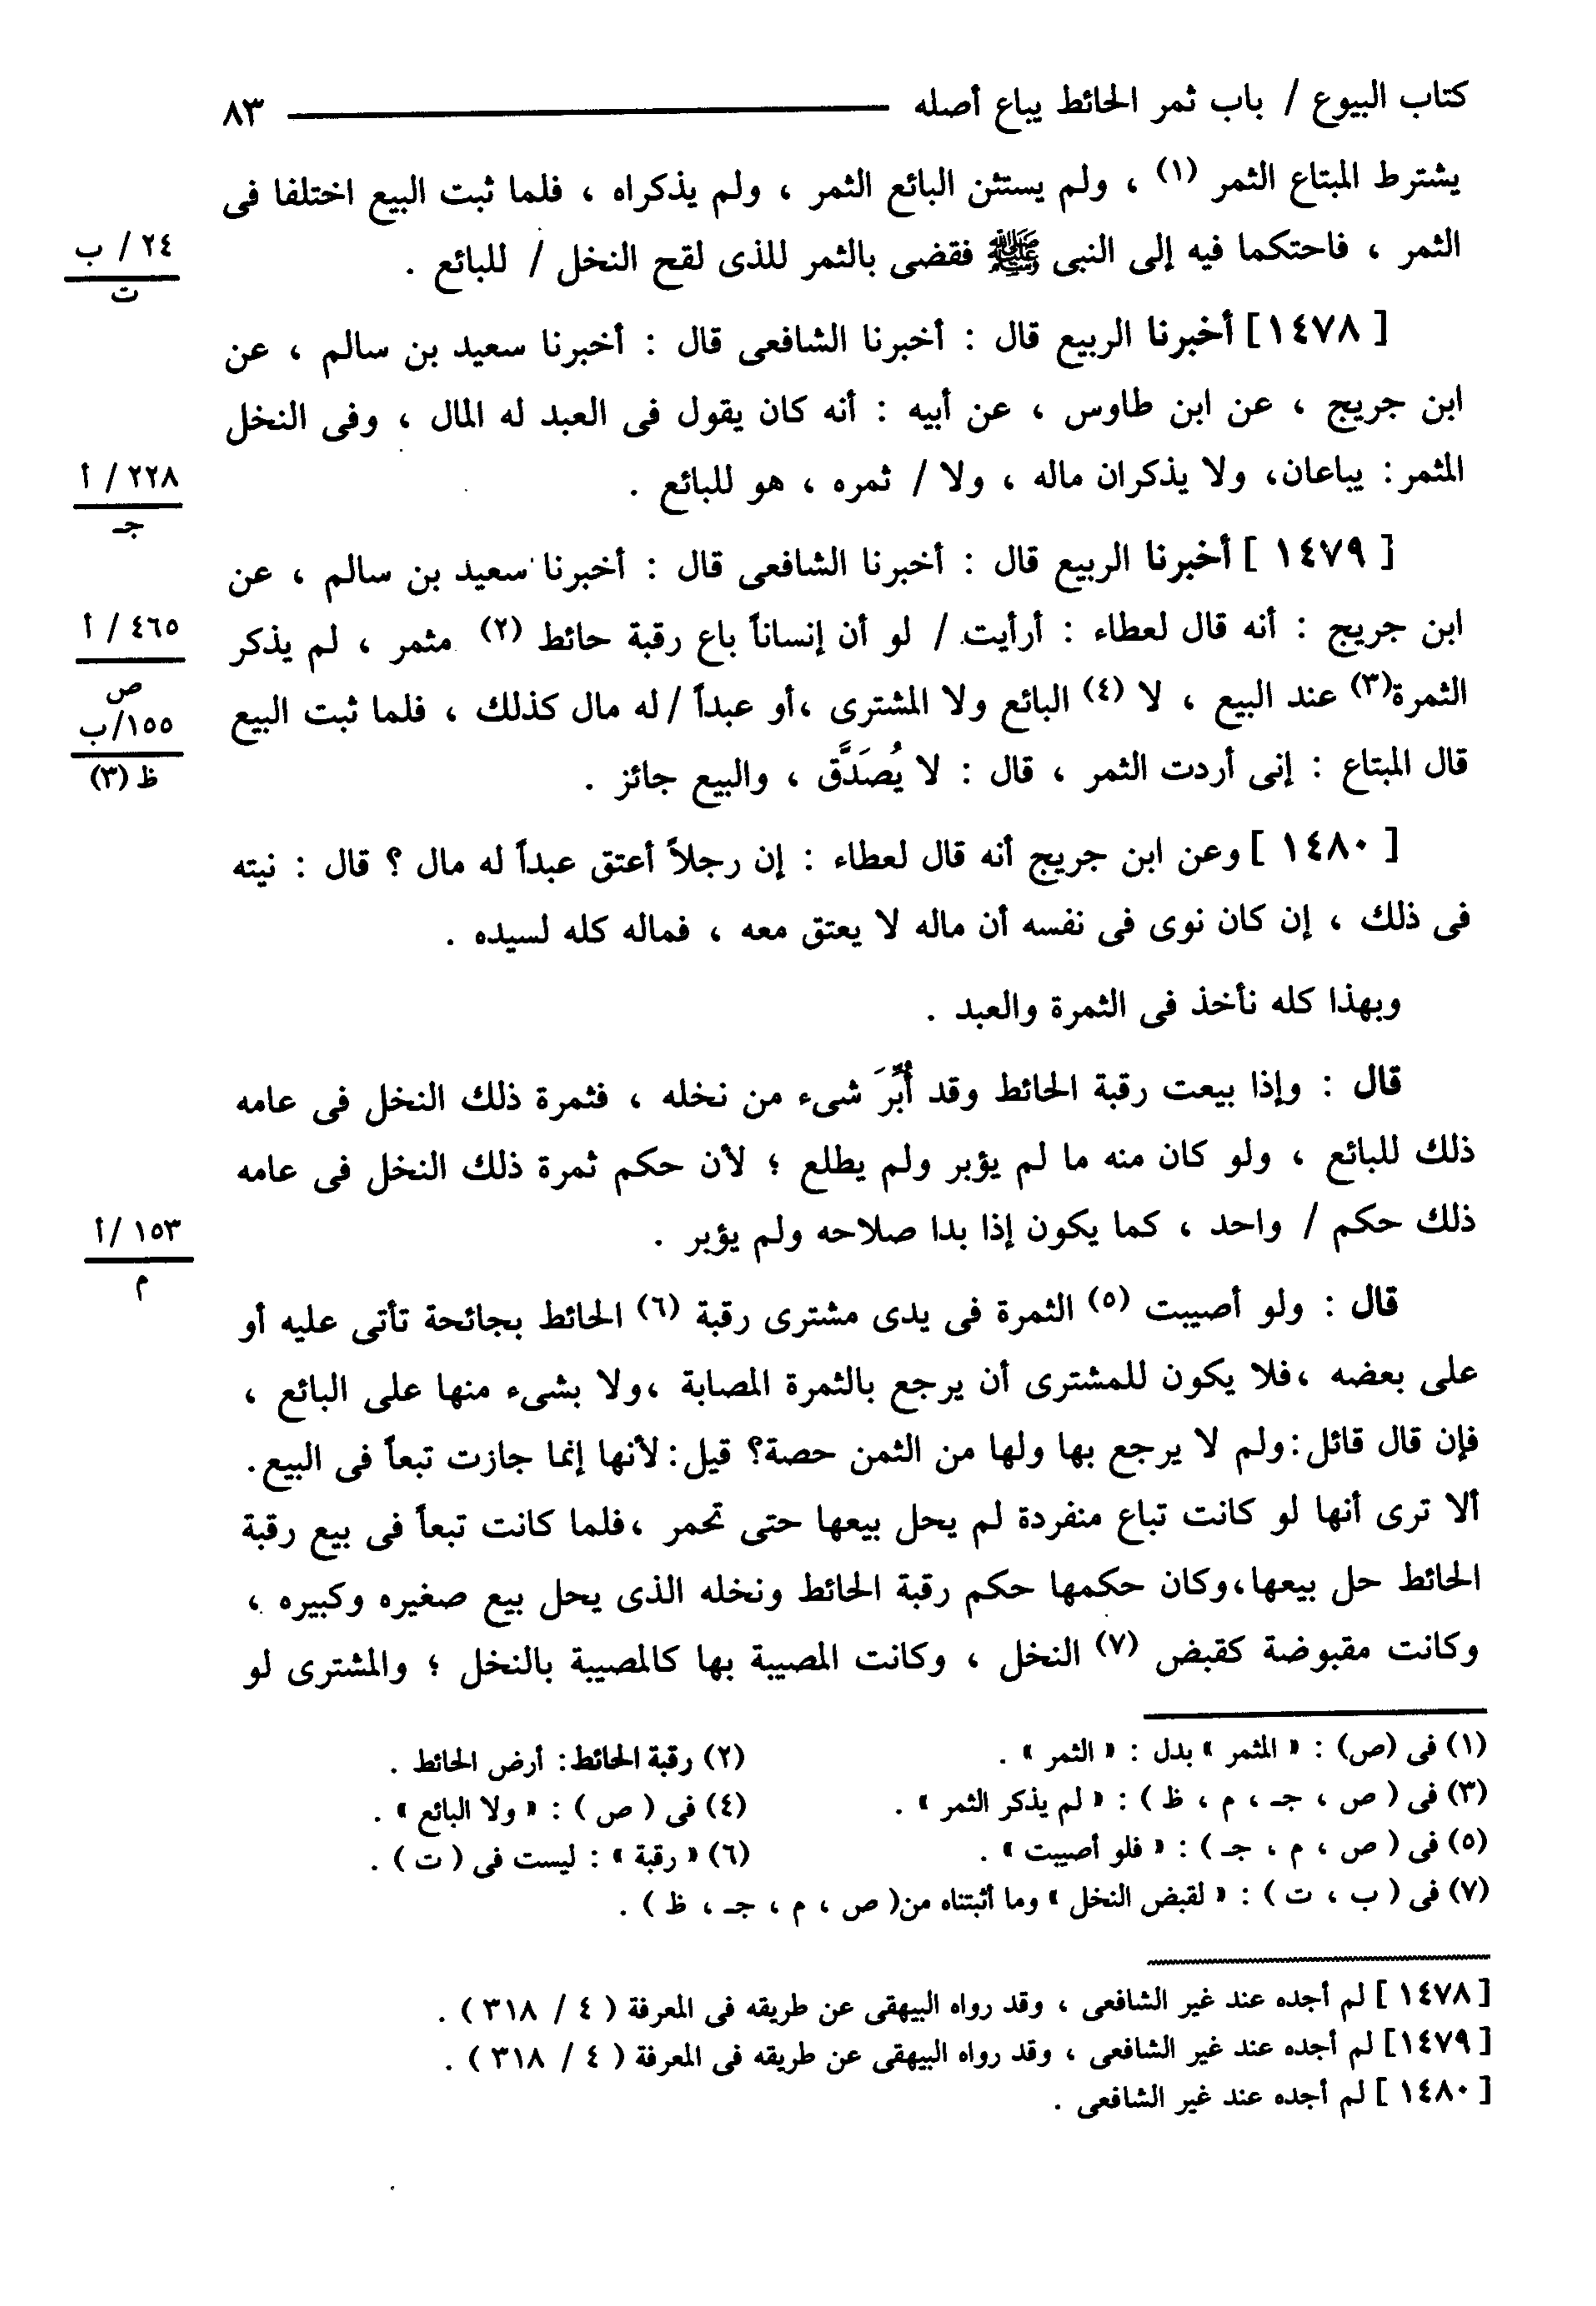 كتاب البيوع / باب ثمر الحائط يباع أصله ٨٣
يشترط المبتاع الثمر (١) ، ولم يستثن البائع الثمر ، ولم يذكراه ، فلما ثبت البيع اختلفا فى
الثمر ، فاحتكما فيه إلى النبى ﷺ فقضى بالثمر للذى لقح النخل / للبائع .
٢٤ / ب
ت
[ ١٤٧٨] أخبرنا الربيع قال : أخبرنا الشافعى قال : أخبرنا سعيد بن سالم ، عن
ابن جريج ، عن ابن طاوس ، عن أبيه : أنه كان يقول فى العبد له المال ، وفى النخل
المثمر: يباعان، ولا يذكران ماله ، ولا / ثمره ، هو للبائع .
٢٢٨ / أ
جـ
[ ١٤٧٩ ] أخبرنا الربيع قال : أخبرنا الشافعى قال : أخبرنا سعيد بن سالم ، عن
ابن جريج : أنه قال لعطاء : أرأيت / لو أن إنساناً باع رقبة حائط (٢) مثمر ، لم يذكر
٤٦٥ / أ
ص
الثمرة(٣) عند البيع ، لا (٤) البائع ولا المشترى ،أو عبداً /له مال كذلك ، فلما ثبت البيع
١٥٥/ب
ظ (٣)
قال المبتاع : إنى أردت الثمر ، قال : لا يُصَدَّق ، والبيع جائز .
[ ١٤٨٠ ] وعن ابن جريج أنه قال لعطاء : إن رجلاً أعتق عبداً له مال ؟ قال : نيته
فى ذلك ، إن كان نوى فى نفسه أن ماله لا يعتق معه ، فماله كله لسيده .
وبهذا كله نأخذ فى الثمرة والعبد .
قال : وإذا بيعت رقبة الحائط وقد أُبِّرَ شىء من نخله ، فثمرة ذلك النخل فى عامه
ذلك للبائع ، ولو كان منه ما لم يؤبر ولم يطلع ؛ لأن حكم ثمرة ذلك النخل فى عامه
ذلك حكم / واحد ، كما يكون إذا بدا صلاحه ولم يؤبر .
١٥٣ /أ
م
قال : ولو أصيبت (٥) الثمرة فى يدى مشترى رقبة (٦) الحائط بجائحة تأتى عليه أو
على بعضه ،فلا يكون للمشترى أن يرجع بالثمرة المصابة ،ولا بشىء منها على البائع ،
فإن قال قائل:ولم لا يرجع بها ولها من الثمن حصة؟ قيل:لأنها إنما جازت تبعاً فى البيع.
ألا ترى أنها لو كانت تباع منفردة لم يحل بيعها حتى تحمر ،فلما كانت تبعاً فى بيع رقبة
الحائط حل بيعها،وكان حكمها حكم رقبة الحائط ونخله الذى يحل بيع صغيره وكبيره ،
وكانت مقبوضة كقبض (٧) النخل ، وكانت المصيبة بها كالمصيبة بالنخل ؛ والمشترى لو
(١) فى (ص) : « المثمر » بدل : « الثمر » . (٢) رقبة الحائط: أرض الحائط .
(٣) فى ( ص ، جـ ، م ، ظ ) : « لم يذكر الثمر » . (٤) فى ( ص ) : « ولا البائع » .
(٥) فى ( ص ، م ، جـ ) : « فلو أصيبت » . (٦) « رقبة » : ليست فى ( ت ) .
(٧) فى ( ب ، ت ) : « لقبض النخل » وما أثبتناه من( ص ، م ، جـ ، ظ ) .
[ ١٤٧٨ ] لم أجده عند غير الشافعى ، وقد رواه البيهقى عن طريقه فى المعرفة ( ٤ / ٣١٨ ) .
[ ١٤٧٩] لم أجده عند غير الشافعى ، وقد رواه البيهقى عن طريقه فى المعرفة ( ٤ / ٣١٨ ) .
[ ١٤٨٠ ] لم أجده عند غير الشافعى .